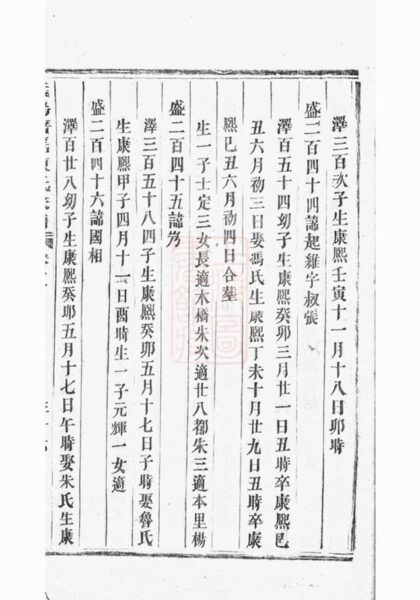 澤三百次子生康熙壬寅十一月十八日卯時
盛二百四十四諱起維字叔張
澤百五十四幼子生康熙癸卯三月廿一日丑時卒康熙己
丑六月初三日娶馮氏生康熙丁未十月廿九日丑時卒康
熙己丑六月初四日合塟
生一子士定三女長適木橋朱次適廿八都朱三適本里楊
盛二百四十五諱
澤三百五十八四子生康熙癸卯五月十七日子時娶魯氏
生康熙甲子四月十二日酉時生一子元輝一女適
盛二百四十六諱國相
澤百廿八幼子生康熙癸卯五月十七日午時娶朱氏生康